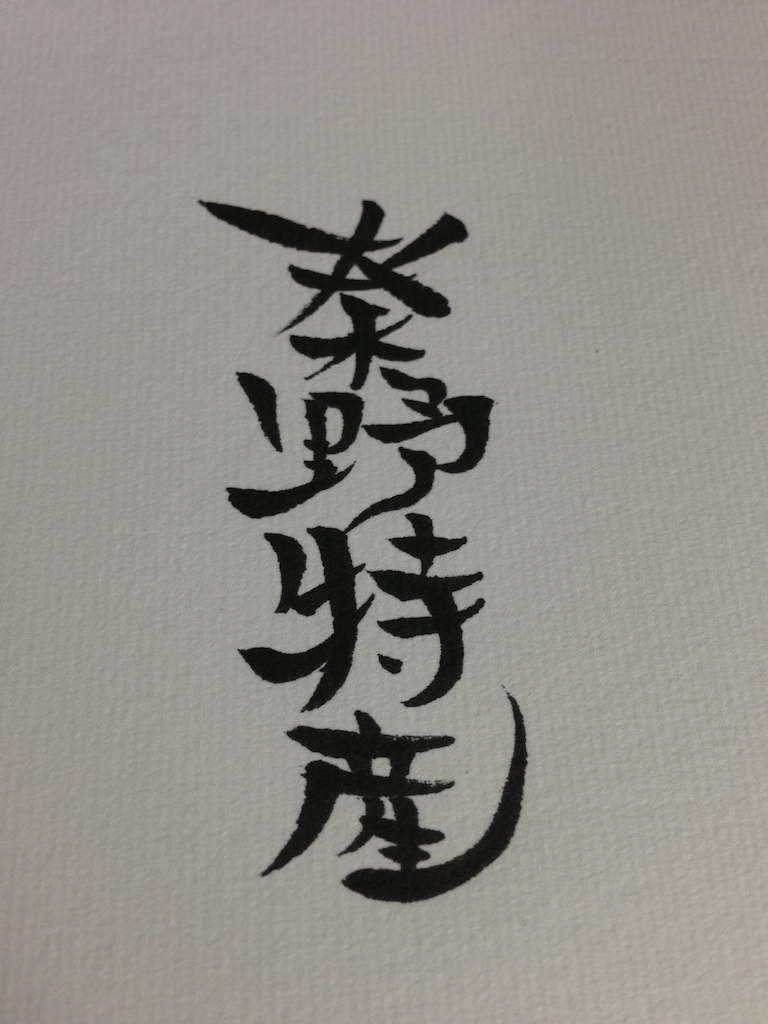 秦野特産